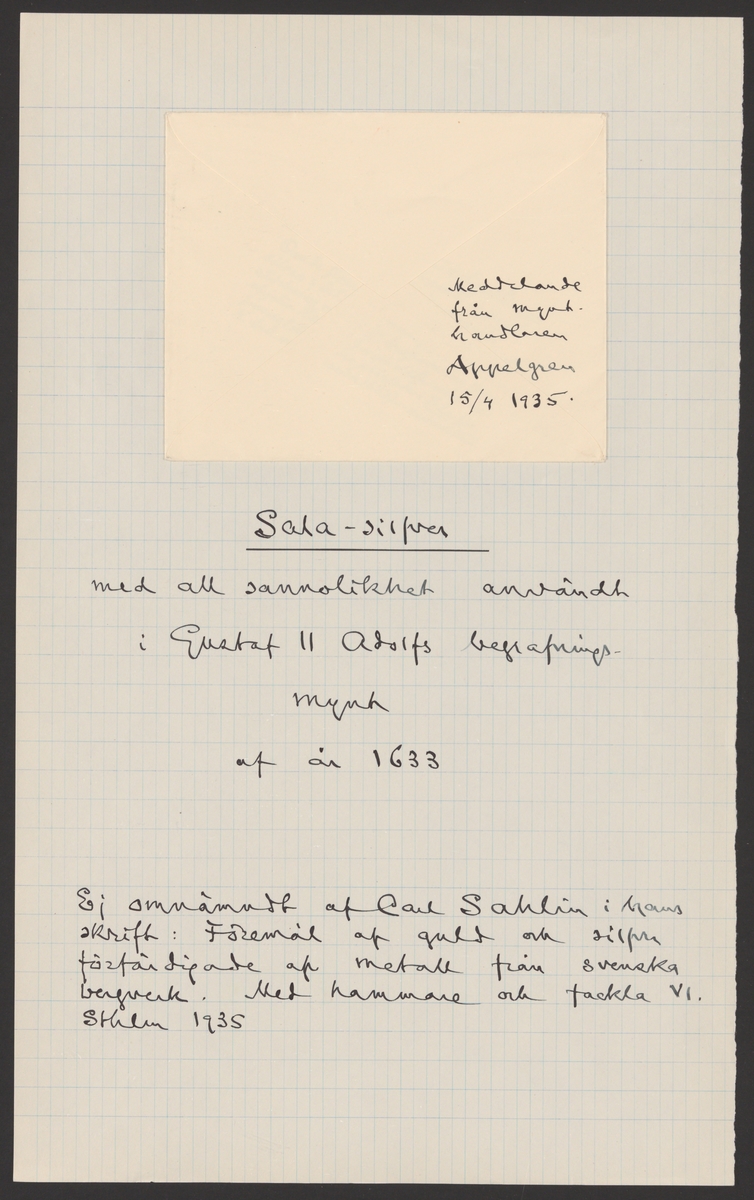 Meddelande
från mynt-
handlaren
Appelgren
15/4 1935.
Sala-silfver
med all sannolikhet användt
i Gustaf II Adolfs begrafnings-
mynt
af år 1633
Ej omnämndt af Carl Sahlin i hans
skrift: Föremål af guld och silfver
förfärdigade af metall från svenska
bergverk. Med hammare och fackla VI.
Sthlm 1935